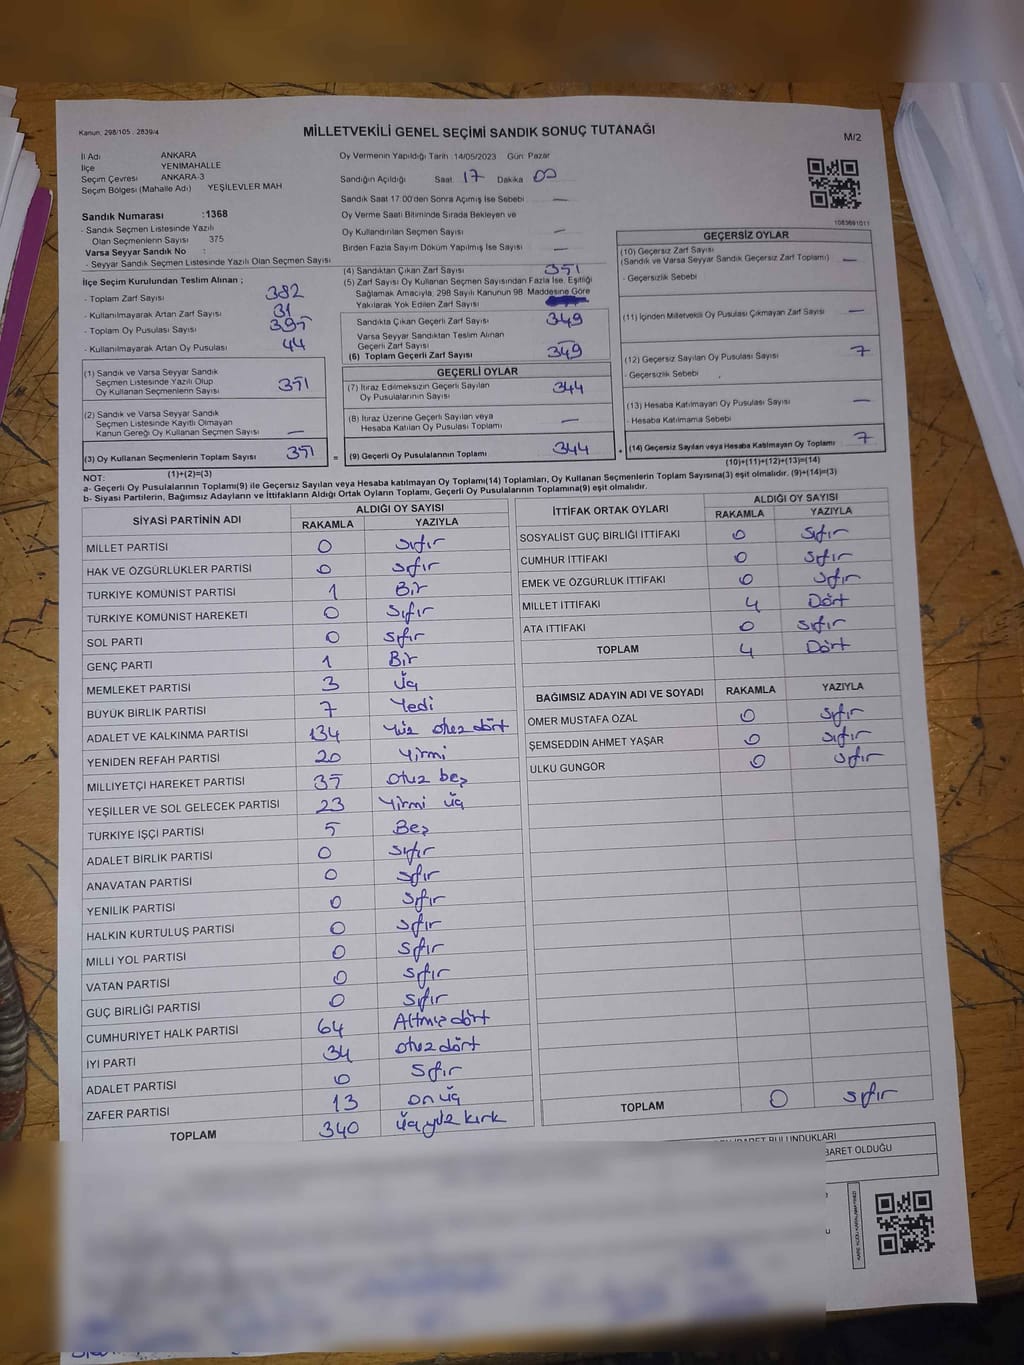 Kanun: 298/105 , 2839/4
MİLLETVEKİLİ GENEL SEÇİMİ SANDIK SONUÇ TUTANAĞI
M/2
İl Adı ANKARA
İlçe YENİMAHALLE
Seçim Çevresi ANKARA-3
Seçim Bölgesi (Mahalle Adı) YEŞİLEVLER MAH
Oy Vermenin Yapıldığı Tarih 14/05/2023 Gün: Pazar
Sandığın Açıldığı Saat 17 Dakika 00
Sandık Saat 17:00'den Sonra Açılmış İse Sebebi —
Oy Verme Saati Bitiminde Sırada Bekleyen ve
Oy Kullandırılan Seçmen Sayısı —
Birden Fazla Sayım Döküm Yapılmış İse Sayısı —
Sandık Numarası :1368
- Sandık Seçmen Listesinde Yazılı
Olan Seçmenlerin Sayısı 375
Varsa Seyyar Sandık No :
- Seyyar Sandık Seçmen Listesinde Yazılı Olan Seçmen Sayısı
İlçe Seçim Kurulundan Teslim Alınan ;
- Toplam Zarf Sayısı 382
- Kullanılmayarak Artan Zarf Sayısı 31
- Toplam Oy Pusulası Sayısı 395
- Kullanılmayarak Artan Oy Pusulası 44
(1) Sandık ve Varsa Seyyar Sandık
Seçmen Listesinde Yazılı Olup
Oy Kullanan Seçmenlerin Sayısı 351
(2) Sandık ve Varsa Seyyar Sandık
Seçmen Listesinde Kayıtlı Olmayan
Kanun Gereği Oy Kullanan Seçmen Sayısı —
(3) Oy Kullanan Seçmenlerin Toplam Sayısı 351
(1)+(2)=(3)
(4) Sandıktan Çıkan Zarf Sayısı 351
(5) Zarf Sayısı Oy Kullanan Seçmen Sayısından Fazla İse, Eşitliği
Sağlamak Amacıyla, 298 Sayılı Kanunun 98. Maddesine Göre
Yakılarak Yok Edilen Zarf Sayısı
Sandıkta Çıkan Geçerli Zarf Sayısı 349
Varsa Seyyar Sandıktan Teslim Alınan
Geçerli Zarf Sayısı
(6) Toplam Geçerli Zarf Sayısı 349
GEÇERLİ OYLAR
(7) İtiraz Edilmeksizin Geçerli Sayılan
Oy Pusulalarının Sayısı 344
(8) İtiraz Üzerine Geçerli Sayılan veya
Hesaba Katılan Oy Pusulası Toplamı —
= (9) Geçerli Oy Pusulalarının Toplamı 344
1083691011
GEÇERSİZ OYLAR
(10) Geçersiz Zarf Sayısı
(Sandık ve Varsa Seyyar Sandık Geçersiz Zarf Toplamı) —
- Geçersizlik Sebebi
(11) İçinden Milletvekili Oy Pusulası Çıkmayan Zarf Sayısı —
(12) Geçersiz Sayılan Oy Pusulası Sayısı 7
- Geçersizlik Sebebi
(13) Hesaba Katılmayan Oy Pusulası Sayısı —
- Hesaba Katılmama Sebebi
+ (14) Geçersiz Sayılan veya Hesaba Katılmayan Oy Toplamı 7
(10)+(11)+(12)+(13)=(14)
NOT:
a- Geçerli Oy Pusulalarının Toplamı(9) ile Geçersiz Sayılan veya Hesaba katılmayan Oy Toplamı(14) Toplamları, Oy Kullanan Seçmenlerin Toplam Sayısına(3) eşit olmalıdır. (9)+(14)=(3)
b- Siyasi Partilerin, Bağımsız Adayların ve İttifakların Aldığı Ortak Oyların Toplamı, Geçerli Oy Pusulalarının Toplamına(9) eşit olmalıdır.
SİYASİ PARTİNİN ADI
ALDIĞI OY SAYISI
RAKAMLA YAZIYLA
MİLLET PARTİSİ 0 sıfır
HAK VE ÖZGÜRLÜKLER PARTİSİ 0 sıfır
TÜRKİYE KOMÜNİST PARTİSİ 1 Bir
TÜRKİYE KOMÜNİST HAREKETİ 0 sıfır
SOL PARTİ 0 sıfır
GENÇ PARTİ 1 Bir
MEMLEKET PARTİSİ 3 üç
BÜYÜK BİRLİK PARTİSİ 7 Yedi
ADALET VE KALKINMA PARTİSİ 134 yüz otuz dört
YENİDEN REFAH PARTİSİ 20 Yirmi
MİLLİYETÇİ HAREKET PARTİSİ 35 otuz beş
YEŞİLLER VE SOL GELECEK PARTİSİ 23 Yirmi üç
TÜRKİYE İŞÇİ PARTİSİ 5 Beş
ADALET BİRLİK PARTİSİ 0 sıfır
ANAVATAN PARTİSİ 0 sıfır
YENİLİK PARTİSİ 0 sıfır
HALKIN KURTULUŞ PARTİSİ 0 sıfır
MİLLİ YOL PARTİSİ 0 sıfır
VATAN PARTİSİ 0 sıfır
GÜÇ BİRLİĞİ PARTİSİ 0 sıfır
CUMHURİYET HALK PARTİSİ 64 Altmış dört
İYİ PARTİ 34 otuz dört
ADALET PARTİSİ 0 sıfır
ZAFER PARTİSİ 13 on üç
TOPLAM 340 üçyüz kırk
İTTİFAK ORTAK OYLARI
ALDIĞI OY SAYISI
RAKAMLA YAZIYLA
SOSYALİST GÜÇ BİRLİĞİ İTTİFAKI 0 sıfır
CUMHUR İTTİFAKI 0 sıfır
EMEK VE ÖZGÜRLÜK İTTİFAKI 0 sıfır
MİLLET İTTİFAKI 4 Dört
ATA İTTİFAKI 0 sıfır
TOPLAM 4 Dört
BAĞIMSIZ ADAYIN ADI VE SOYADI RAKAMLA YAZIYLA
ÖMER MUSTAFA ÖZAL 0 sıfır
ŞEMSEDDİN AHMET YAŞAR 0 sıfır
ÜLKÜ GÜNGÖR 0 sıfır
TOPLAM 0 sıfır
BULUNDUKLARI
BARET OLDUĞU